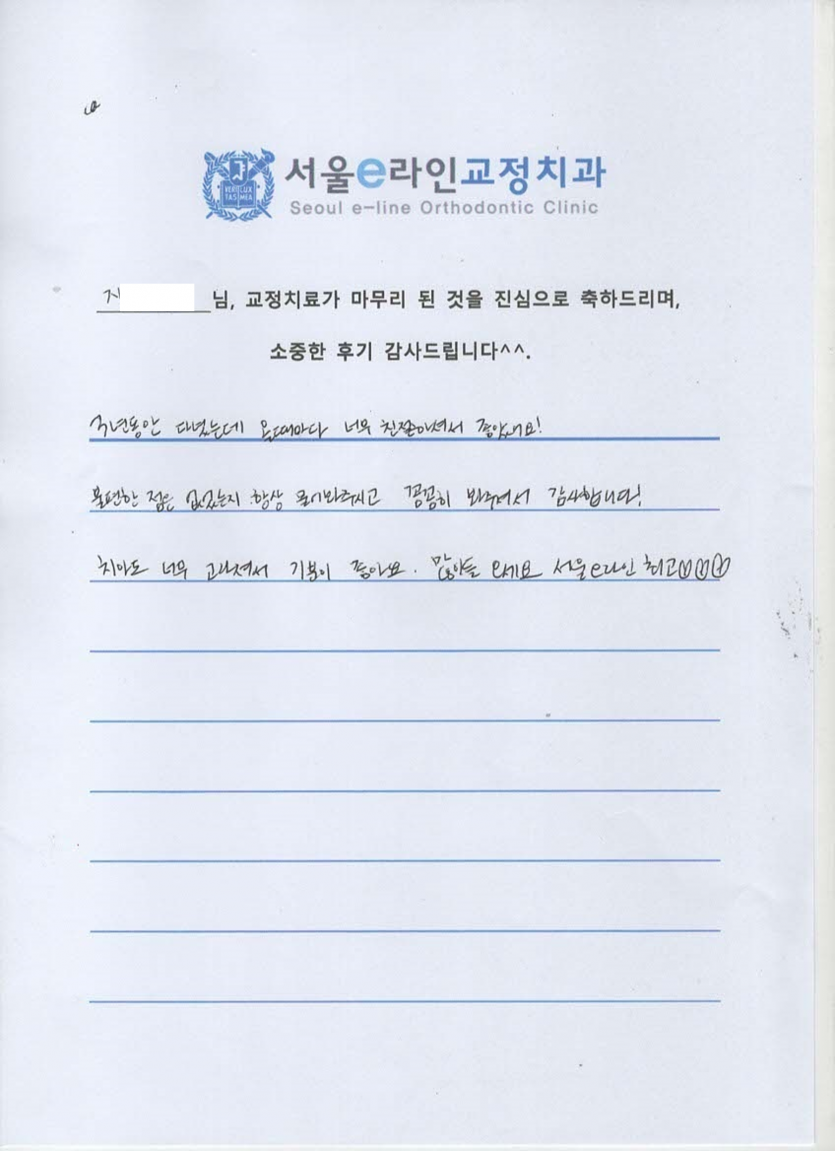 VERI LUX
TAS MEA
서울e라인교정치과
Seoul e-line Orthodontic Clinic
지 님, 교정치료가 마무리 된 것을 진심으로 축하드리며,
소중한 후기 감사드립니다^^.
3년동안 다녔는데 올때마다 너무 친절하셔서 좋았어요!
불편한 점은 없었는지 항상 물어봐주시고 꼼꼼히 봐주셔서 감사합니다!
치아도 너무 고르셔서 기분이 좋아요. 많이들 오세요 서울e라인 최고♡♡♡